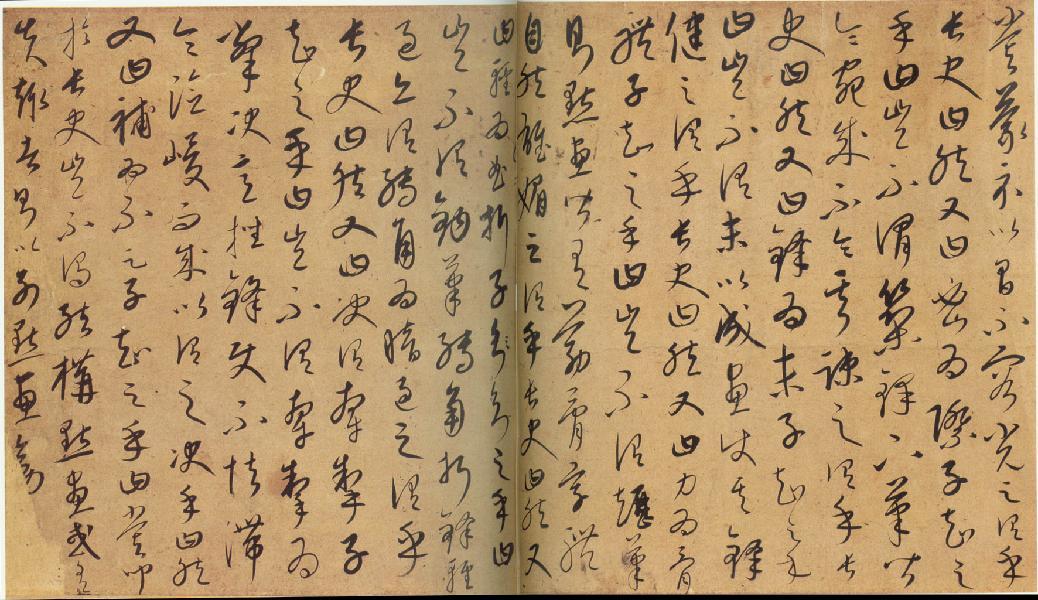 嘗蒙示以間不容光之謂乎
長史曰然又曰密為際子知之
乎曰豈不謂築鋒下筆皆
令宛成不令其疎之謂乎長
史曰然又曰鋒為末子知之乎
曰豈不謂末以成畫使其鋒
健之謂乎長史曰然又曰力為骨
體子知之乎曰豈不謂趯筆
則點畫皆有筋骨字體
自然雄媚之謂乎長史曰然又
曰輕為曲折子知之乎曰
豈不謂鉤筆轉角折鋒輕
過亦謂轉角為暗過之謂乎
長史曰然又曰決謂牽掣子
知之乎曰豈不謂牽掣為
撆決意挫鋒使不怯滯
令險峻而成以謂之決乎曰然
又曰補為不足子知之乎曰嘗聞
於長史豈不謂結構點畫或有
失趣者則以別點畫旁